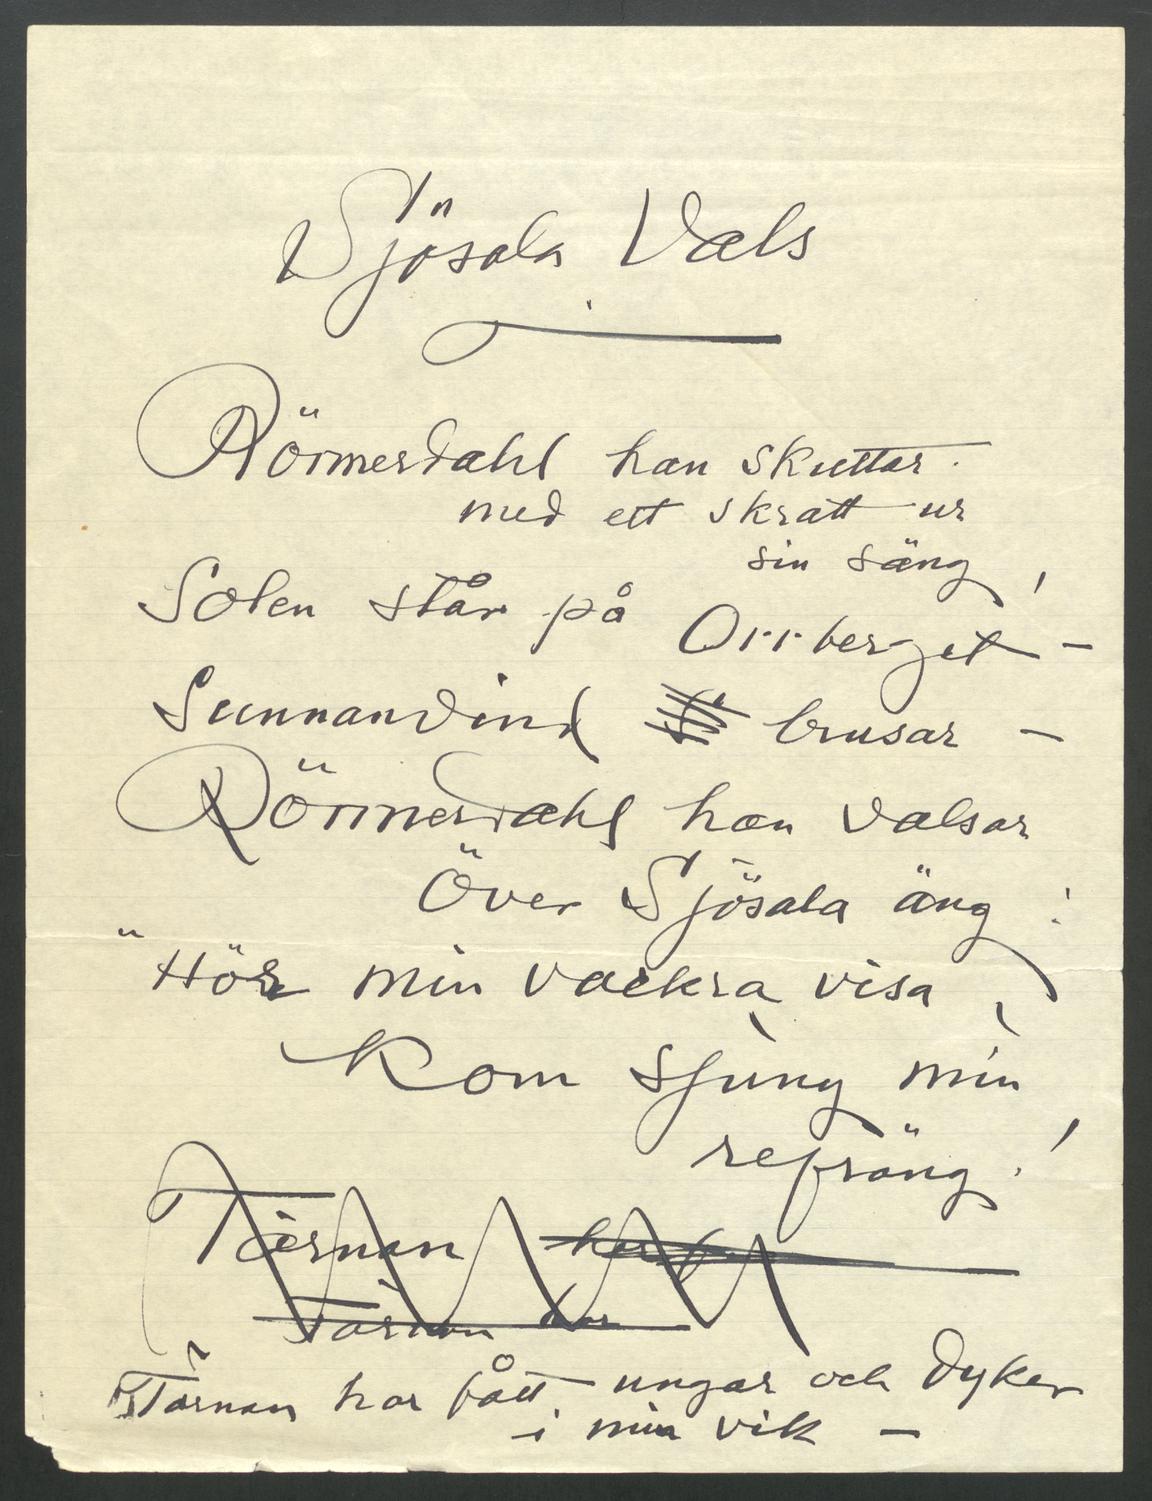 Sjösala Vals
Rörmerdahl han skuttar
med ett skratt ur
sin säng!
Solen står på Orrberget –
Sunnanvind brusar –
Rörmerdahl han valsar
Över Sjösala äng:
"Hör min vackra visa,
Kom sjung min
refräng!
Tärnan har
Tärnan har
Tärnan har fått ungar och dyker
i min vik –